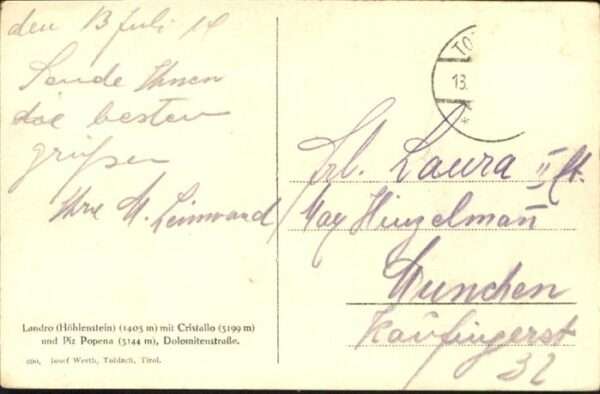 den 13 Juli 14
Sende Ihnen
die besten
grüßen
Ihre M. Leinwand
Landro (Höhlenstein) (1403 m) mit Cristallo (3199 m)
und Piz Popena (3144 m), Dolomitenstraße.
Josef Werth, Toblach, Tirol.
TO
13.
Frl. Laura II St.
Max Hinzelmann
München
Kaufingerst
32